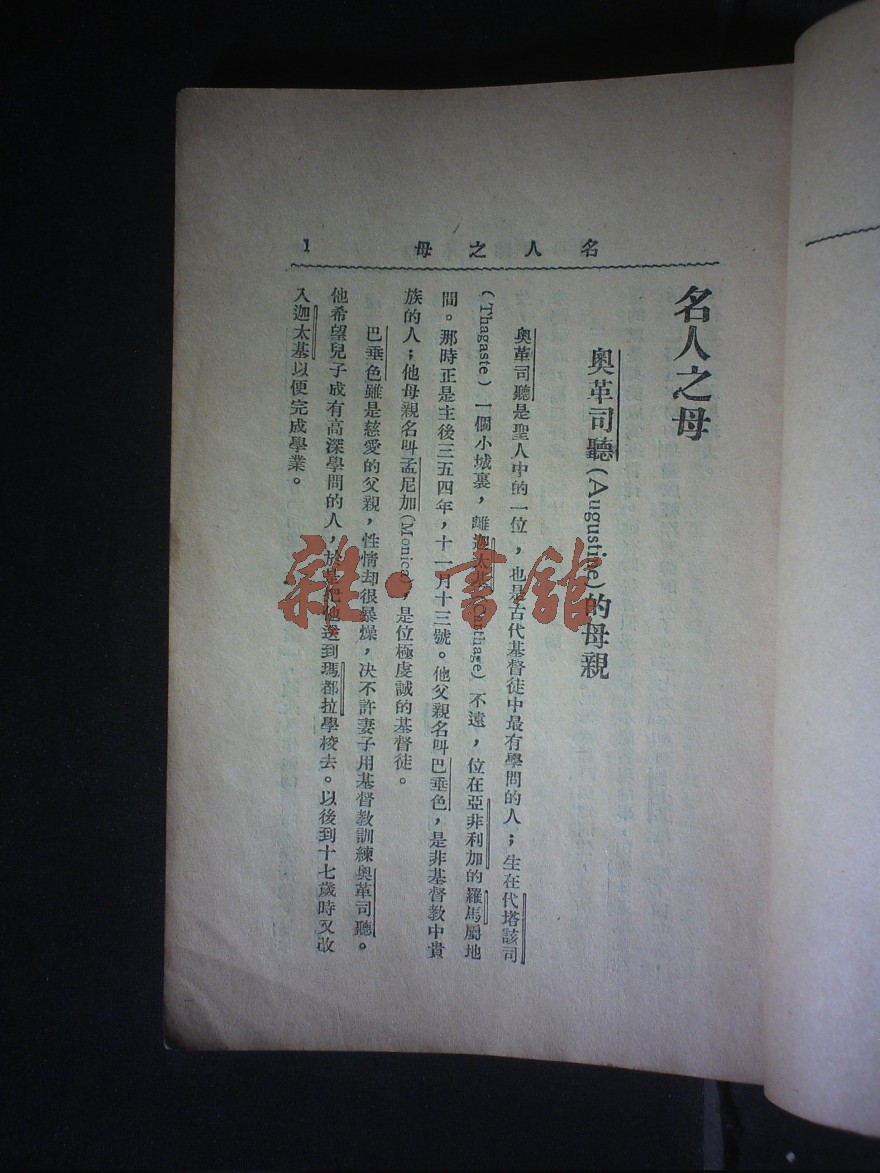 名人之母
1
名人之母
奧革司聽(Augustine)的母親
奧革司聽是聖人中的一位，也是古代基督徒中最有學問的人；生在代塔該司
(Thagaste) 一個小城裏，離迦太基(Carthage) 不遠，位在亞非利加的羅馬屬地
間。那時正是主後三五四年，十一月十三號。他父親名叫巴垂色，是非基督教中貴
族的人；他母親名叫孟尼加(Monica)，是位極虔誠的基督徒。
巴垂色雖是慈愛的父親，性情却很暴燥，决不許妻子用基督教訓練奧革司聽。
他希望兒子成有高深學問的人，於是把他送到瑪都拉學校去。以後到十七歲時又改
入迦太基以便完成學業。
雜·書館